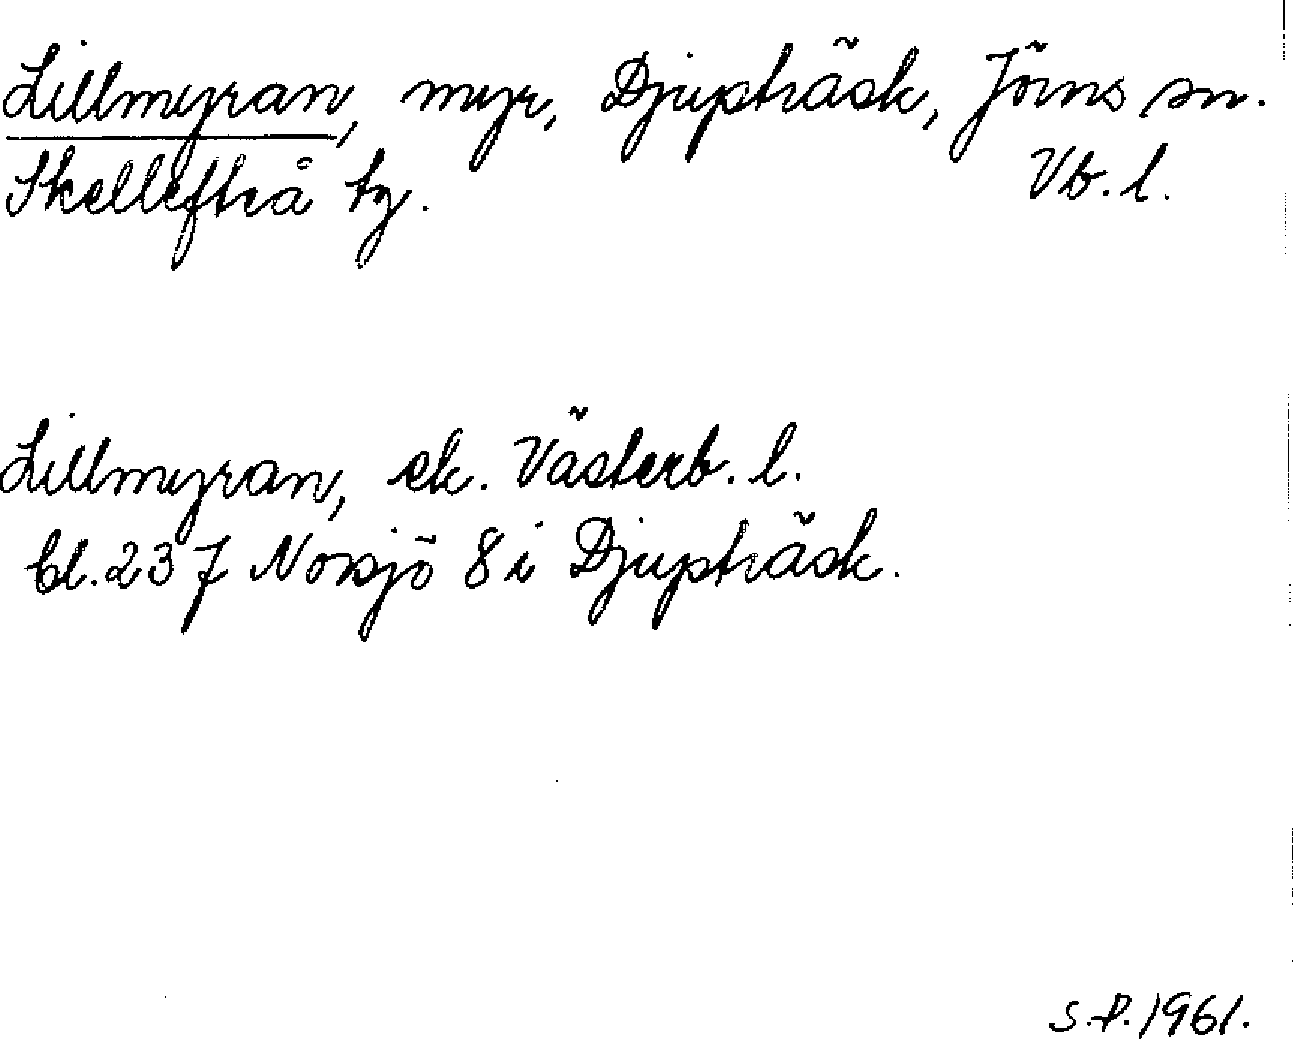 Lillmyran, myr, Djupträsk, Jörns sn.
Skellefteå tg. Vb. l.
Lillmyran, ek. Västerb. l.
bl. 237 Norsjö 8 i Djupträsk.
S.P. 1961.